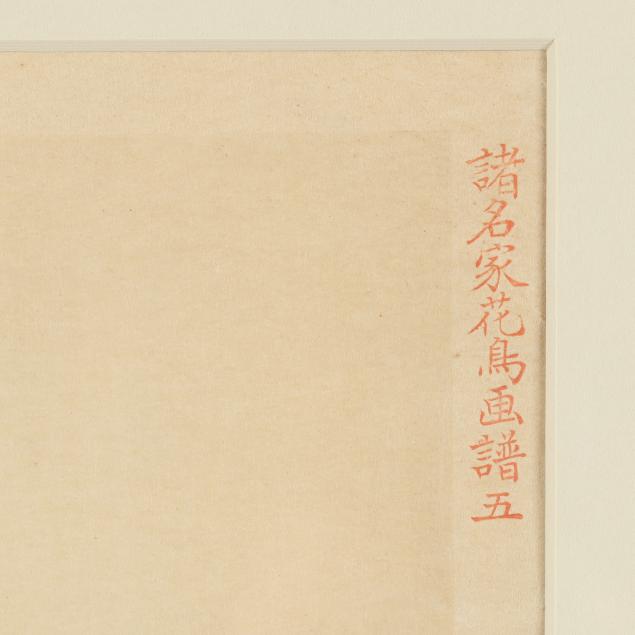 諸名家花鳥画譜五